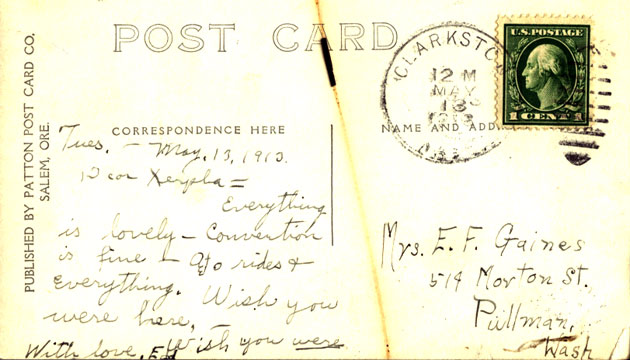 PUBLISHED BY PATTON POST CARD CO,
SALEM, ORE.
POST CARD
CLARKSTO
12 M
MAY
13
U.S. POSTAGE
1 CENT 1
CORRESPONDENCE HERE
NAME AND ADD
Tues. - May, 13, 1913.
Dear =
Everything
is lovely - Convention
is fine - rides &
everything. Wish you
were here, -
With love, Ed Wish you were
Mrs. E. F. Gaines
514 Morton St.
Pullman,
Wash